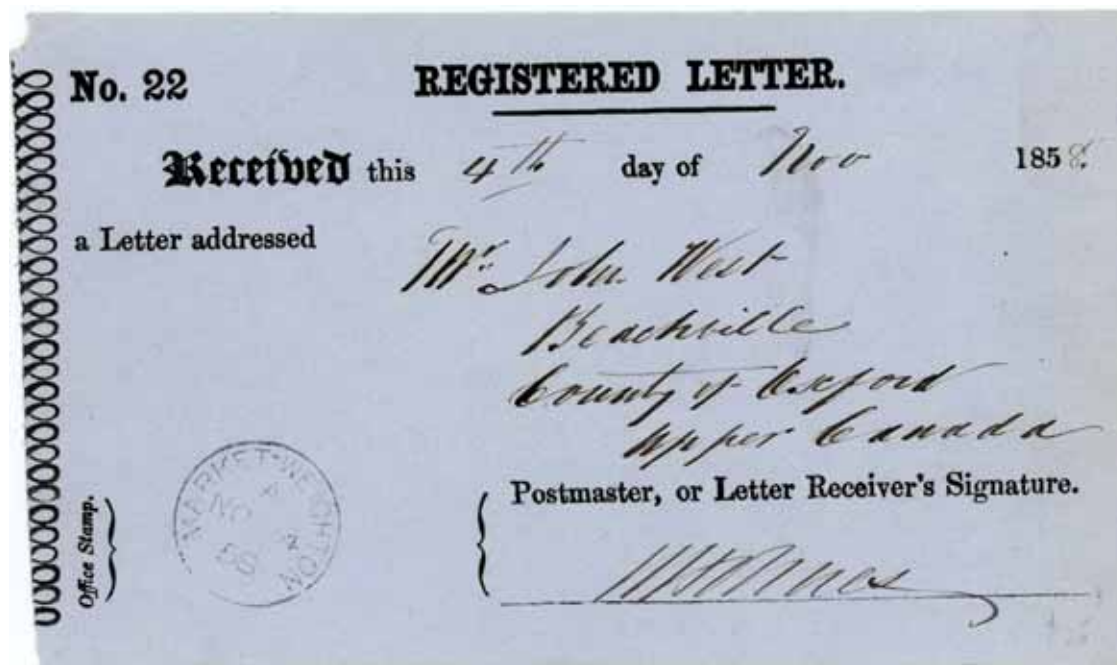 No. 22
REGISTERED LETTER.
Received this 4th day of Nov 1858.
a Letter addressed
Mr. John West
Beachville
County of Oxford
Upper Canada
Office Stamp.
MARKET-WEIGHTON
NO
58
Postmaster, or Letter Receiver's Signature.